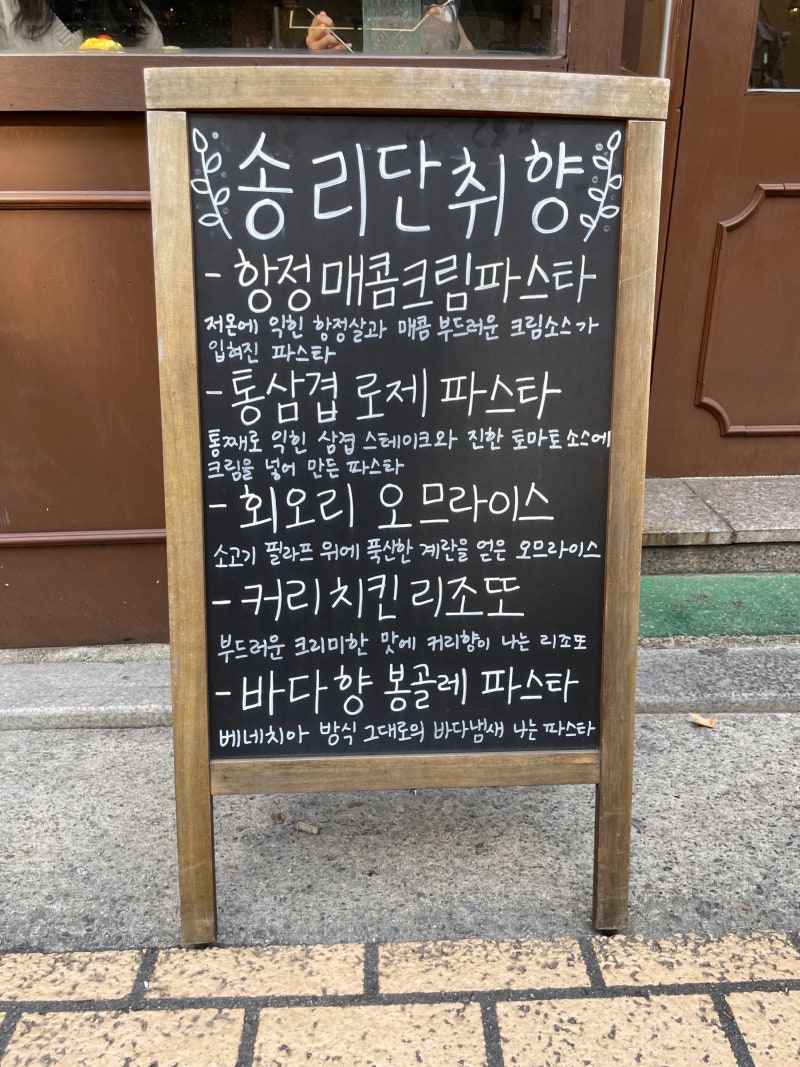 송리단취향
- 항정매콤크림파스타
저온에 익힌 항정살과 매콤 부드러운 크림소스가
입혀진 파스타
- 통삼겹 로제 파스타
통째로 익힌 삼겹 스테이크와 진한 토마토소스에
크림을 넣어 만든 파스타
- 회오리 오므라이스
소고기 필라프 위에 푹신한 계란을 얹은 오므라이스
- 커리치킨리조또
부드러운 크리미한 맛에 커리향이 나는 리조또
- 바다향 봉골레 파스타
베네치아 방식 그대로의 바다냄새 나는 파스타